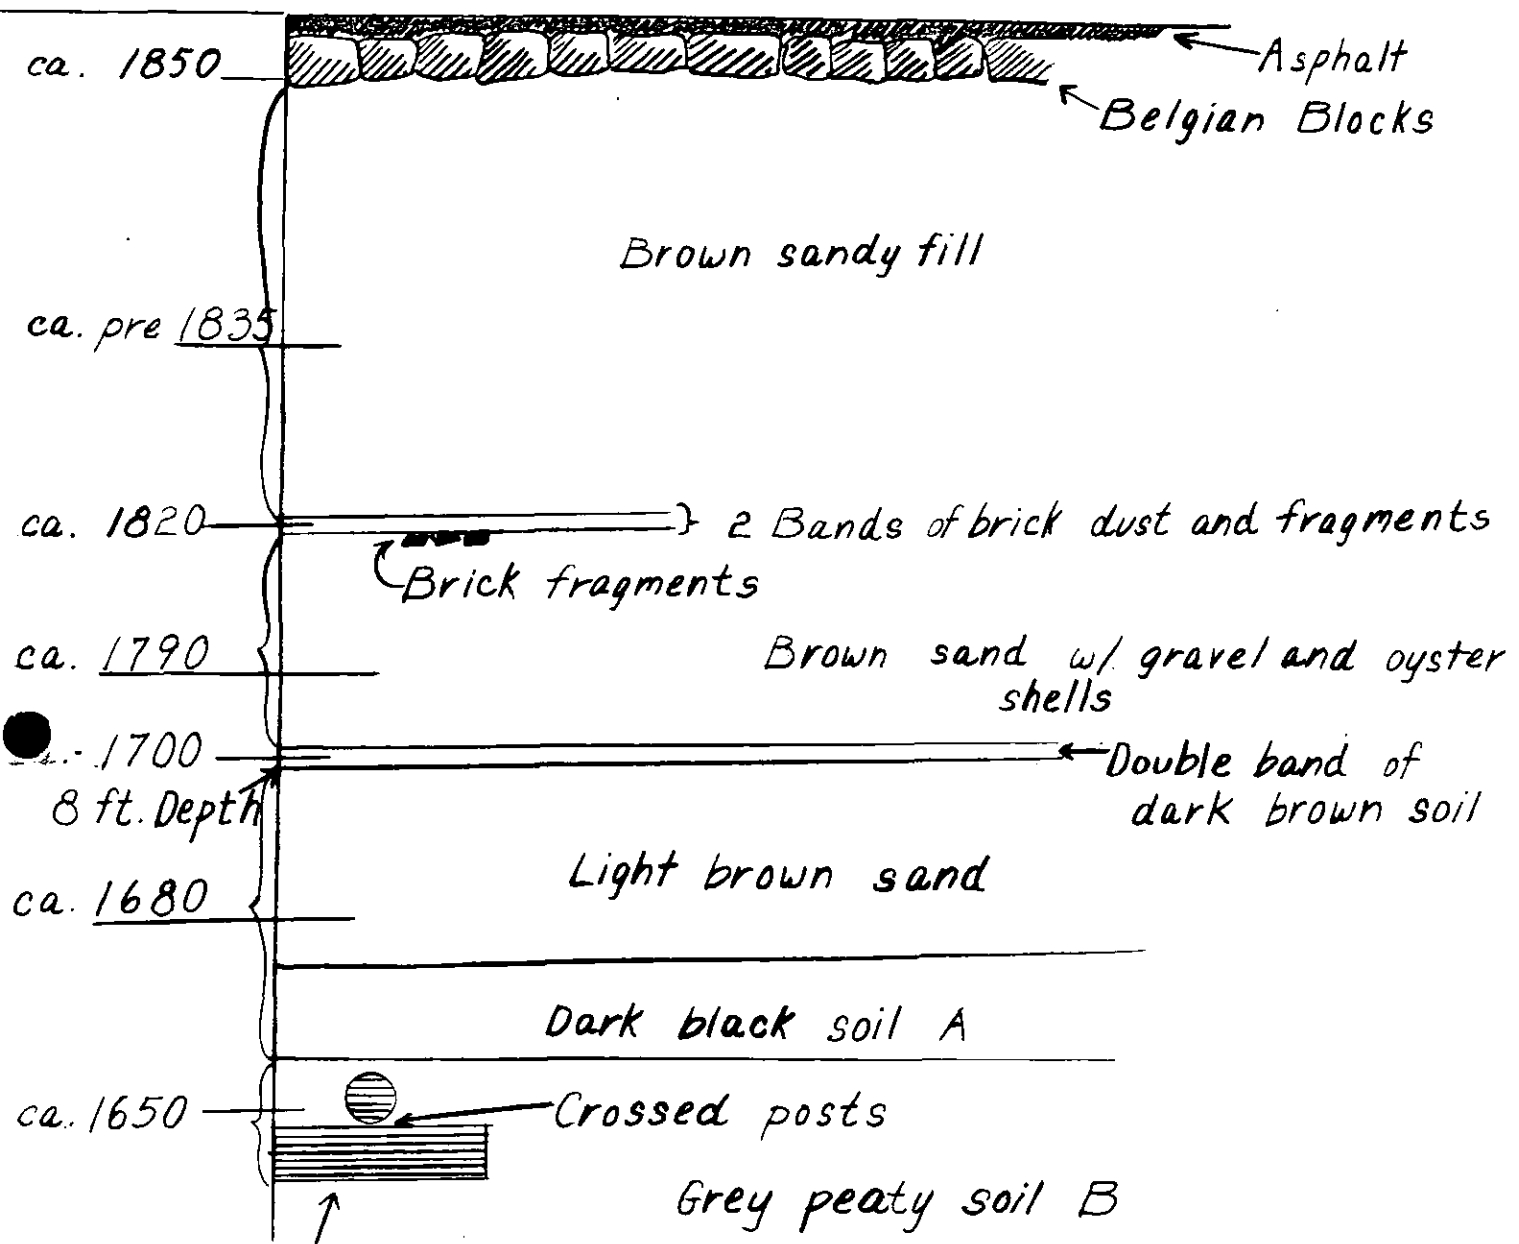 ca. 1850
Asphalt
Belgian Blocks
Brown sandy fill
ca. pre 1835
ca. 1820
2 Bands of brick dust and fragments
Brick fragments
ca. 1790
Brown sand w/ gravel and oyster
shells
1700
8 ft. Depth
Double band of
dark brown soil
Light brown sand
ca. 1680
Dark black soil A
ca. 1650
Crossed posts
Grey peaty soil B